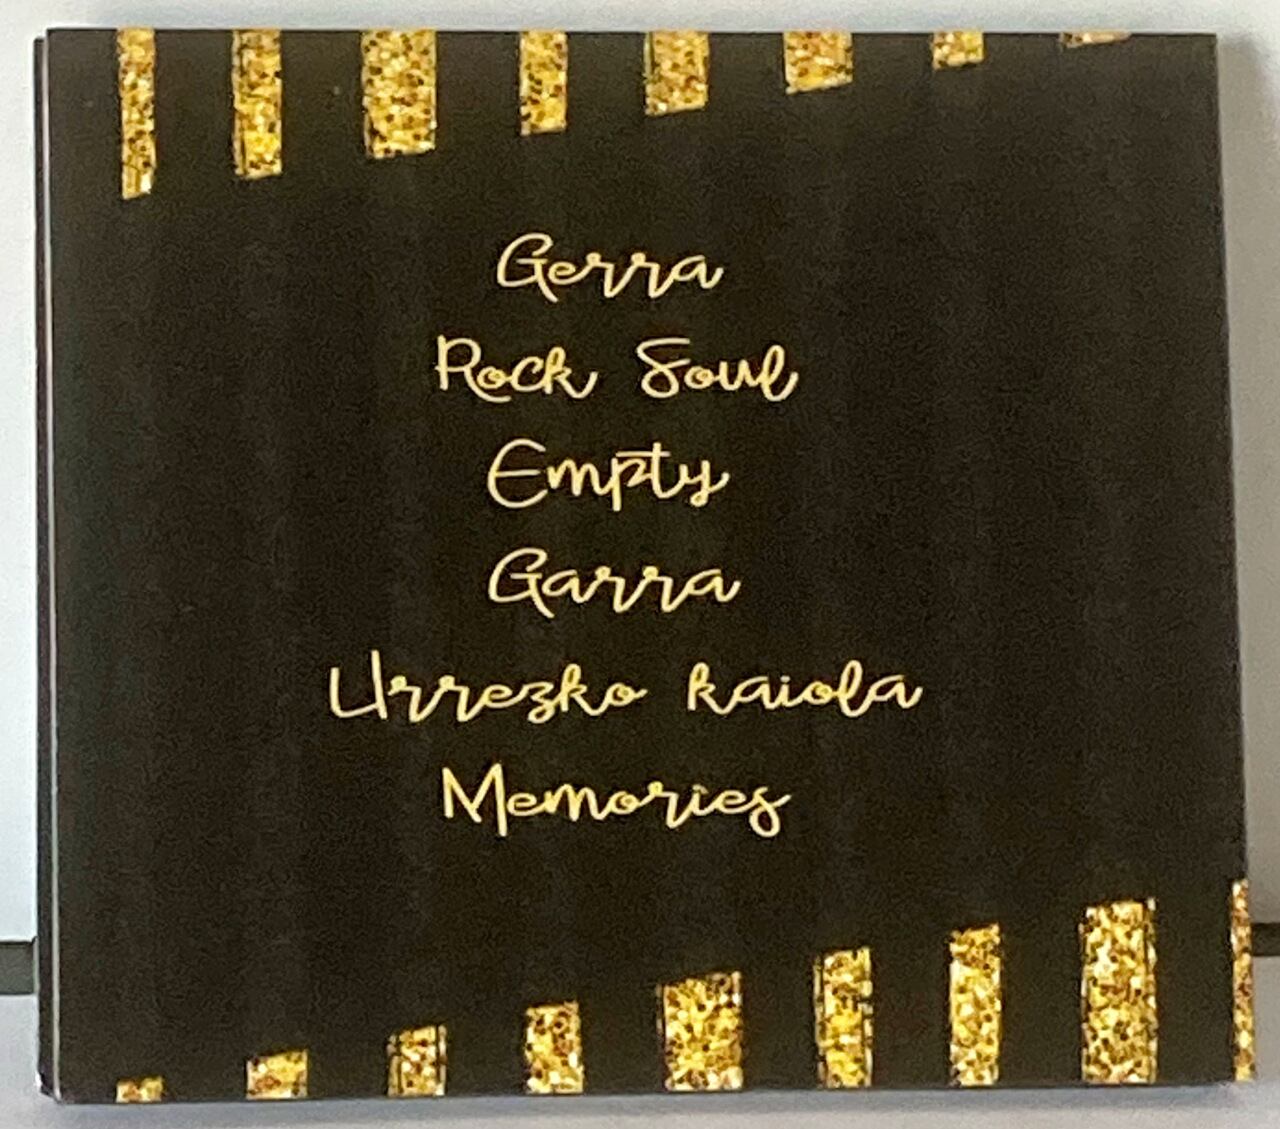 Gerra
Rock Soul
Empty
Garra
Urrezko kaiola
Memories